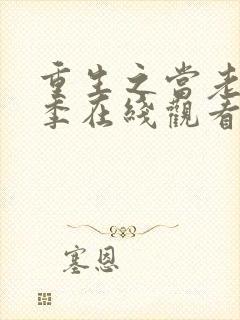 重生之當老
季在綫觀看
塞恩